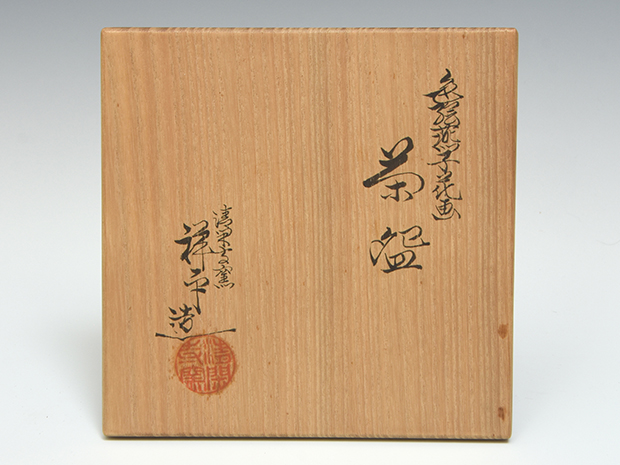 色絵芥子花画
茶盌
清閑寺窯
祥平造
清閑寺窯